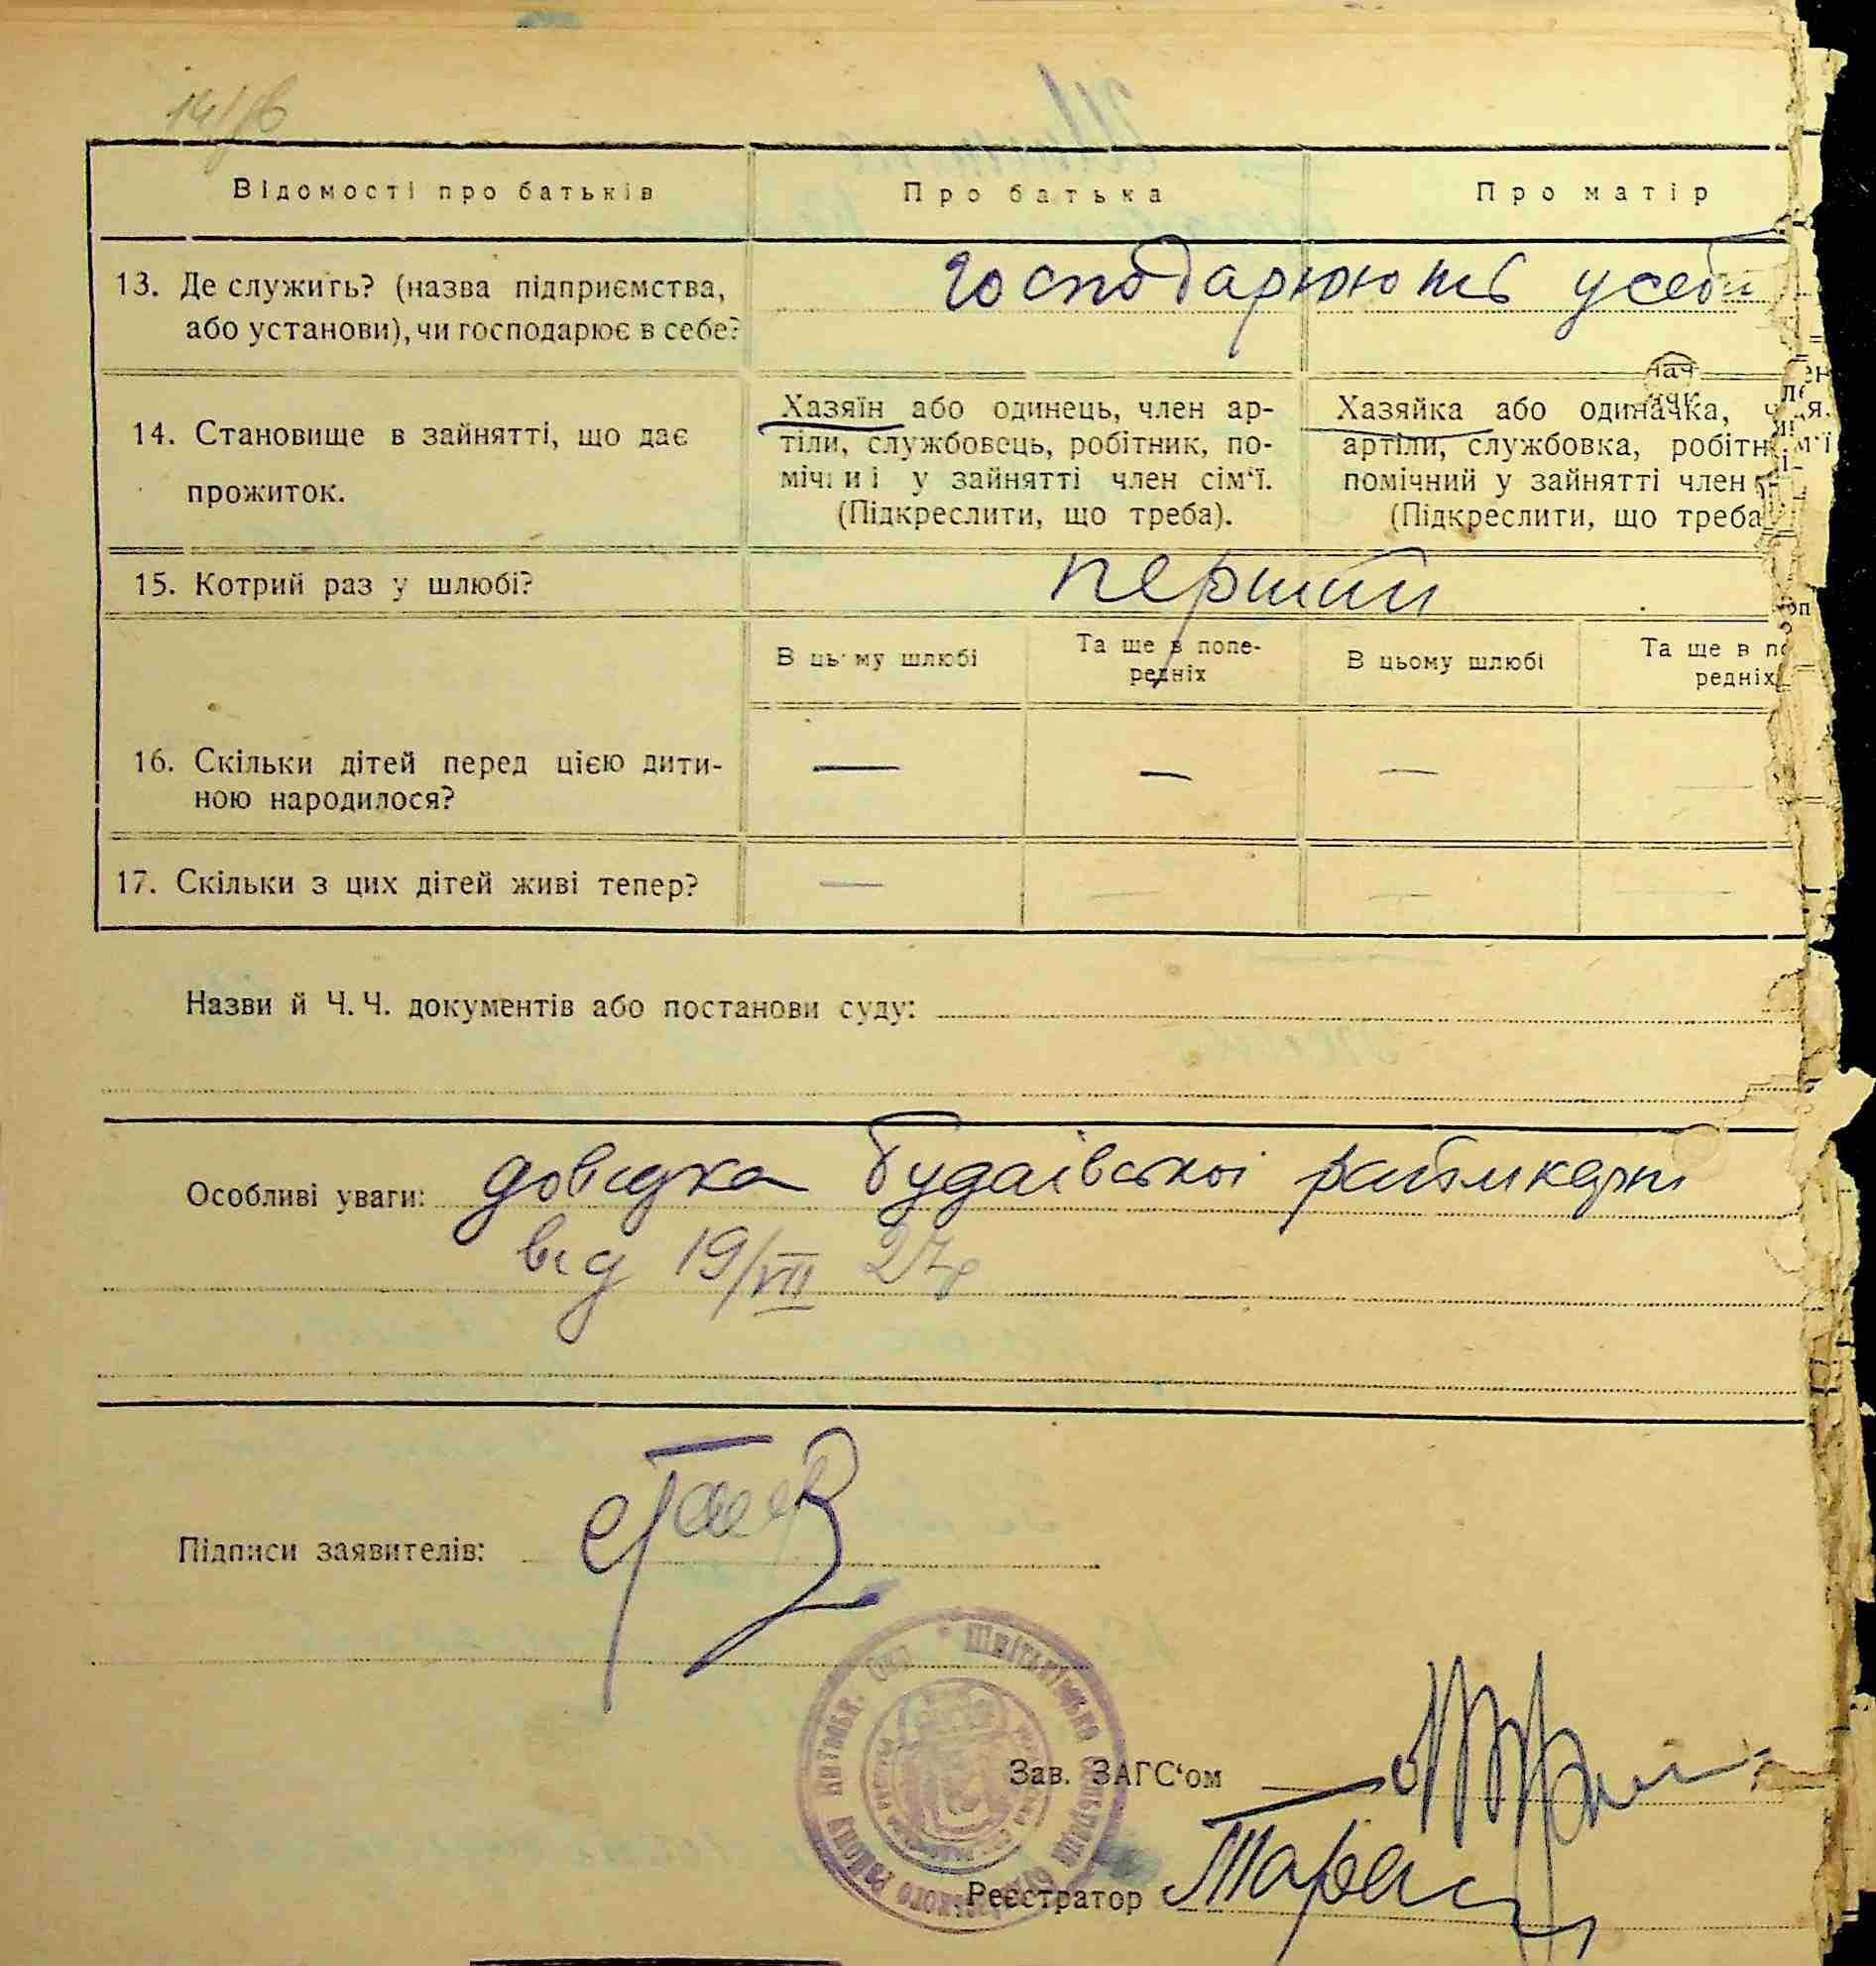 Відомості про батьків
Про батька
Про матір
13. Де служить? (назва підприємства,
або установи), чи господарює в себе?
господарюють у себе
14. Становище в зайнятті, що дає
прожиток.
Хазяїн або одинець, член ар-
тіли, службовець, робітник, по-
у зайнятті член сім'ї.
(Підкреслити, що треба).
Хазяйка або одиначка,
артіли, службовка,
помічний у зайнятті член
(Підкреслити, що треба
15. Котрий раз у шлюбі?
перший
В цьму шлюбі
Та ще в попе-
редніх
В цьому шлюбі
Та ще в
редніх
16. Скільки дітей перед цією дити-
ною народилося?
— — —
17. Скільки з цих дітей живі тепер?
— — — —
Назви й Ч. Ч. документів або постанови суду:
Особливі уваги: довідка Будаівської
від 19/VII 27
Підписи заявителів:
Зав. ЗАГС'ом
Реєстратор